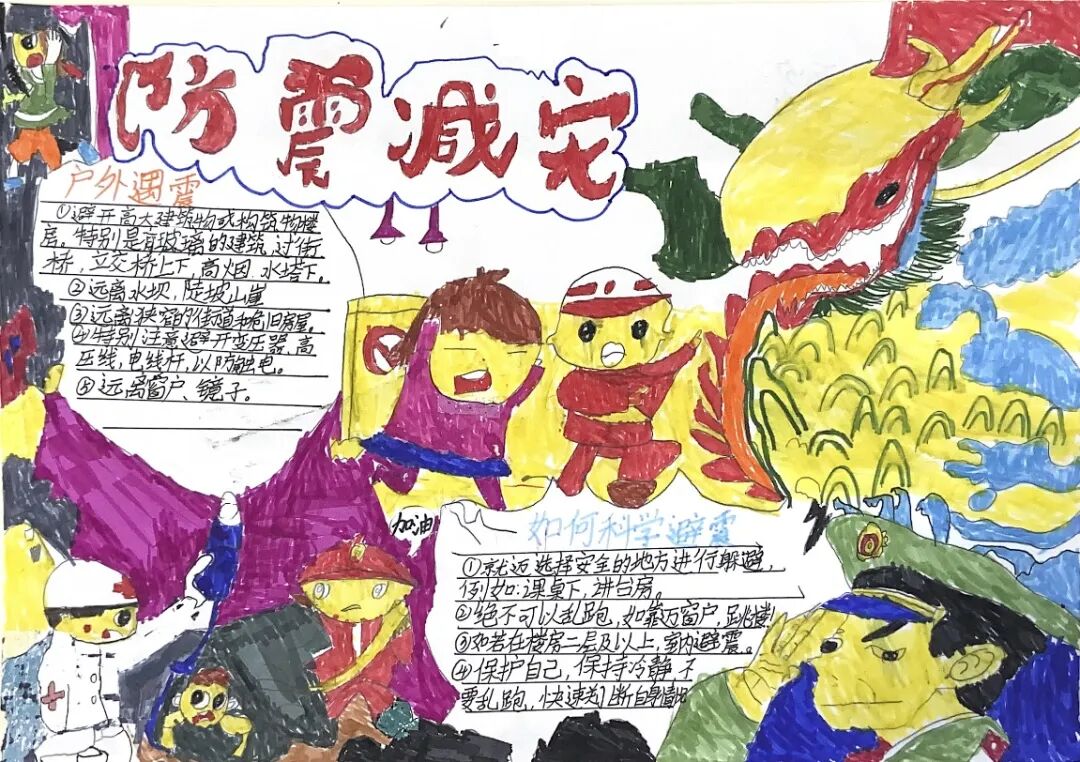 防震减灾
户外遇震
①避开高大建筑物或构筑物楼
房。特别是有玻璃的建筑,过街
桥,立交桥上下,高烟,水塔下。
②远离水坝,陡坡山崖
③远离狭窄的街道和危旧房屋。
④特别注意避开变压器,高
压线,电线杆,以防触电。
⑤远离窗户、镜子。
加油
如何科学避震
①就近选择安全的地方进行躲避,
例如:课桌下,讲台房。
②绝不可以乱跑,如靠近窗户,跳楼!
③如若在楼房二层及以上,室内避震。
④保护自己,保持冷静,不
要乱跑,快速判断自身情况